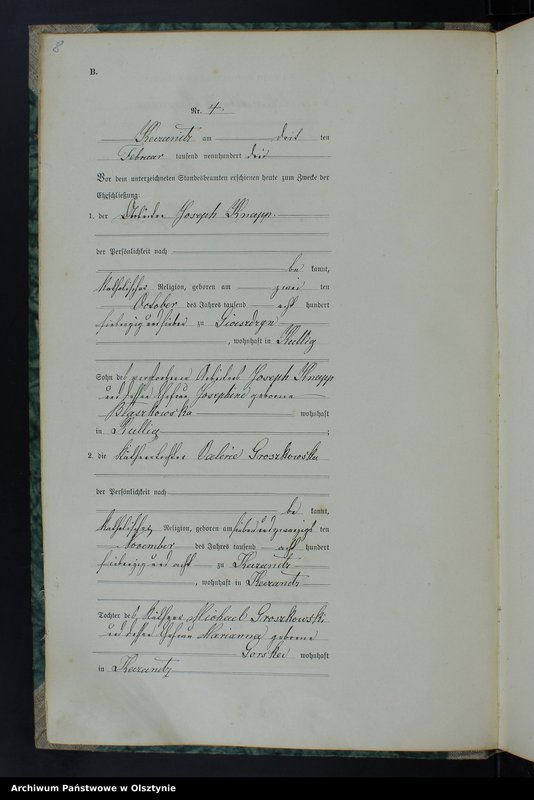 8
B.
Nr. 4.
am drei ten
Februar tausend neunhundert drei
Vor dem unterzeichneten Standesbeamten erschienen heute zum Zwecke der
Eheschließung:
1. der Joseph Knapp
der Persönlichkeit nach
be kannt,
katholischer Religion, geboren am zwei ten
October des Jahres tausend acht hundert
siebenzig und sieben zu
, wohnhaft in
Sohn des verstorbenen Arbeiters Joseph Knapp
und dessen Ehefrau Josephine geborene
Blaszkowska wohnhaft
in ;
2. die Käthnertochter Valerie Groszkowska
der Persönlichkeit nach
be kannt,
katholischer Religion, geboren am sieben und zwanzigs ten
November des Jahres tausend acht hundert
siebenzig und acht zu
, wohnhaft in
Tochter des Käthners Michael Groszkowski
und dessen Ehefrau Marianna geborene
Gorski wohnhaft
in
Archiwum Państwowe w Olsztynie